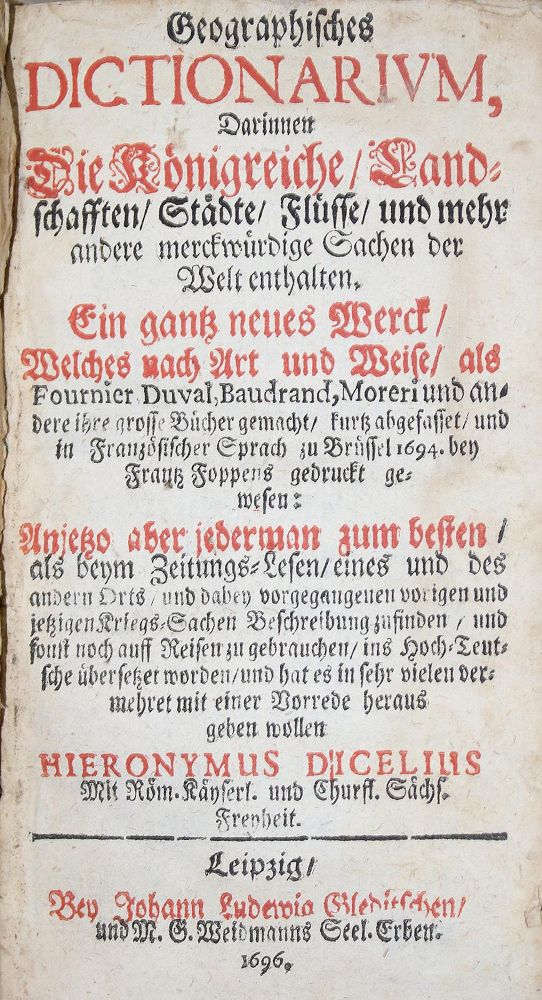 Geographisches
DICTIONARIVM,
Darinnen
Die Königreiche/ Land-
schafften/ Städte/ Flüsse/ und mehr
andere merckwürdige Sachen der
Welt enthalten.
Ein gantz neues Werck/
Welches nach Art und Weise/ als
Fournier Duval, Baudrand, Moreri und an-
dere ihre grosse Bücher gemacht/ kurtz abgefasset/ und
in Französischer Sprach zu Brüssel 1694. bey
Frantz Foppens gedruckt ge-
wesen:
Anjetzo aber jederman zum besten/
als beym Zeitungs-Lesen/ eines und des
andern Orts/ und dabey vorgegangenen vorigen und
jetzigen Kriegs-Sachen Beschreibung zufinden/ und
sonst noch auff Reisen zu gebrauchen/ ins Hoch-Teut-
sche übersetzet worden/ und hat es in sehr vielen ver-
mehret mit einer Vorrede heraus
geben wollen
HIERONYMUS DICELIUS
Mit Röm. Käyserl. und Churfl. Sächs.
Freyheit.
Leipzig/
Bey Johann Ludewig Gleditschen/
und M. G. Weidmanns Seel. Erben.
1696.